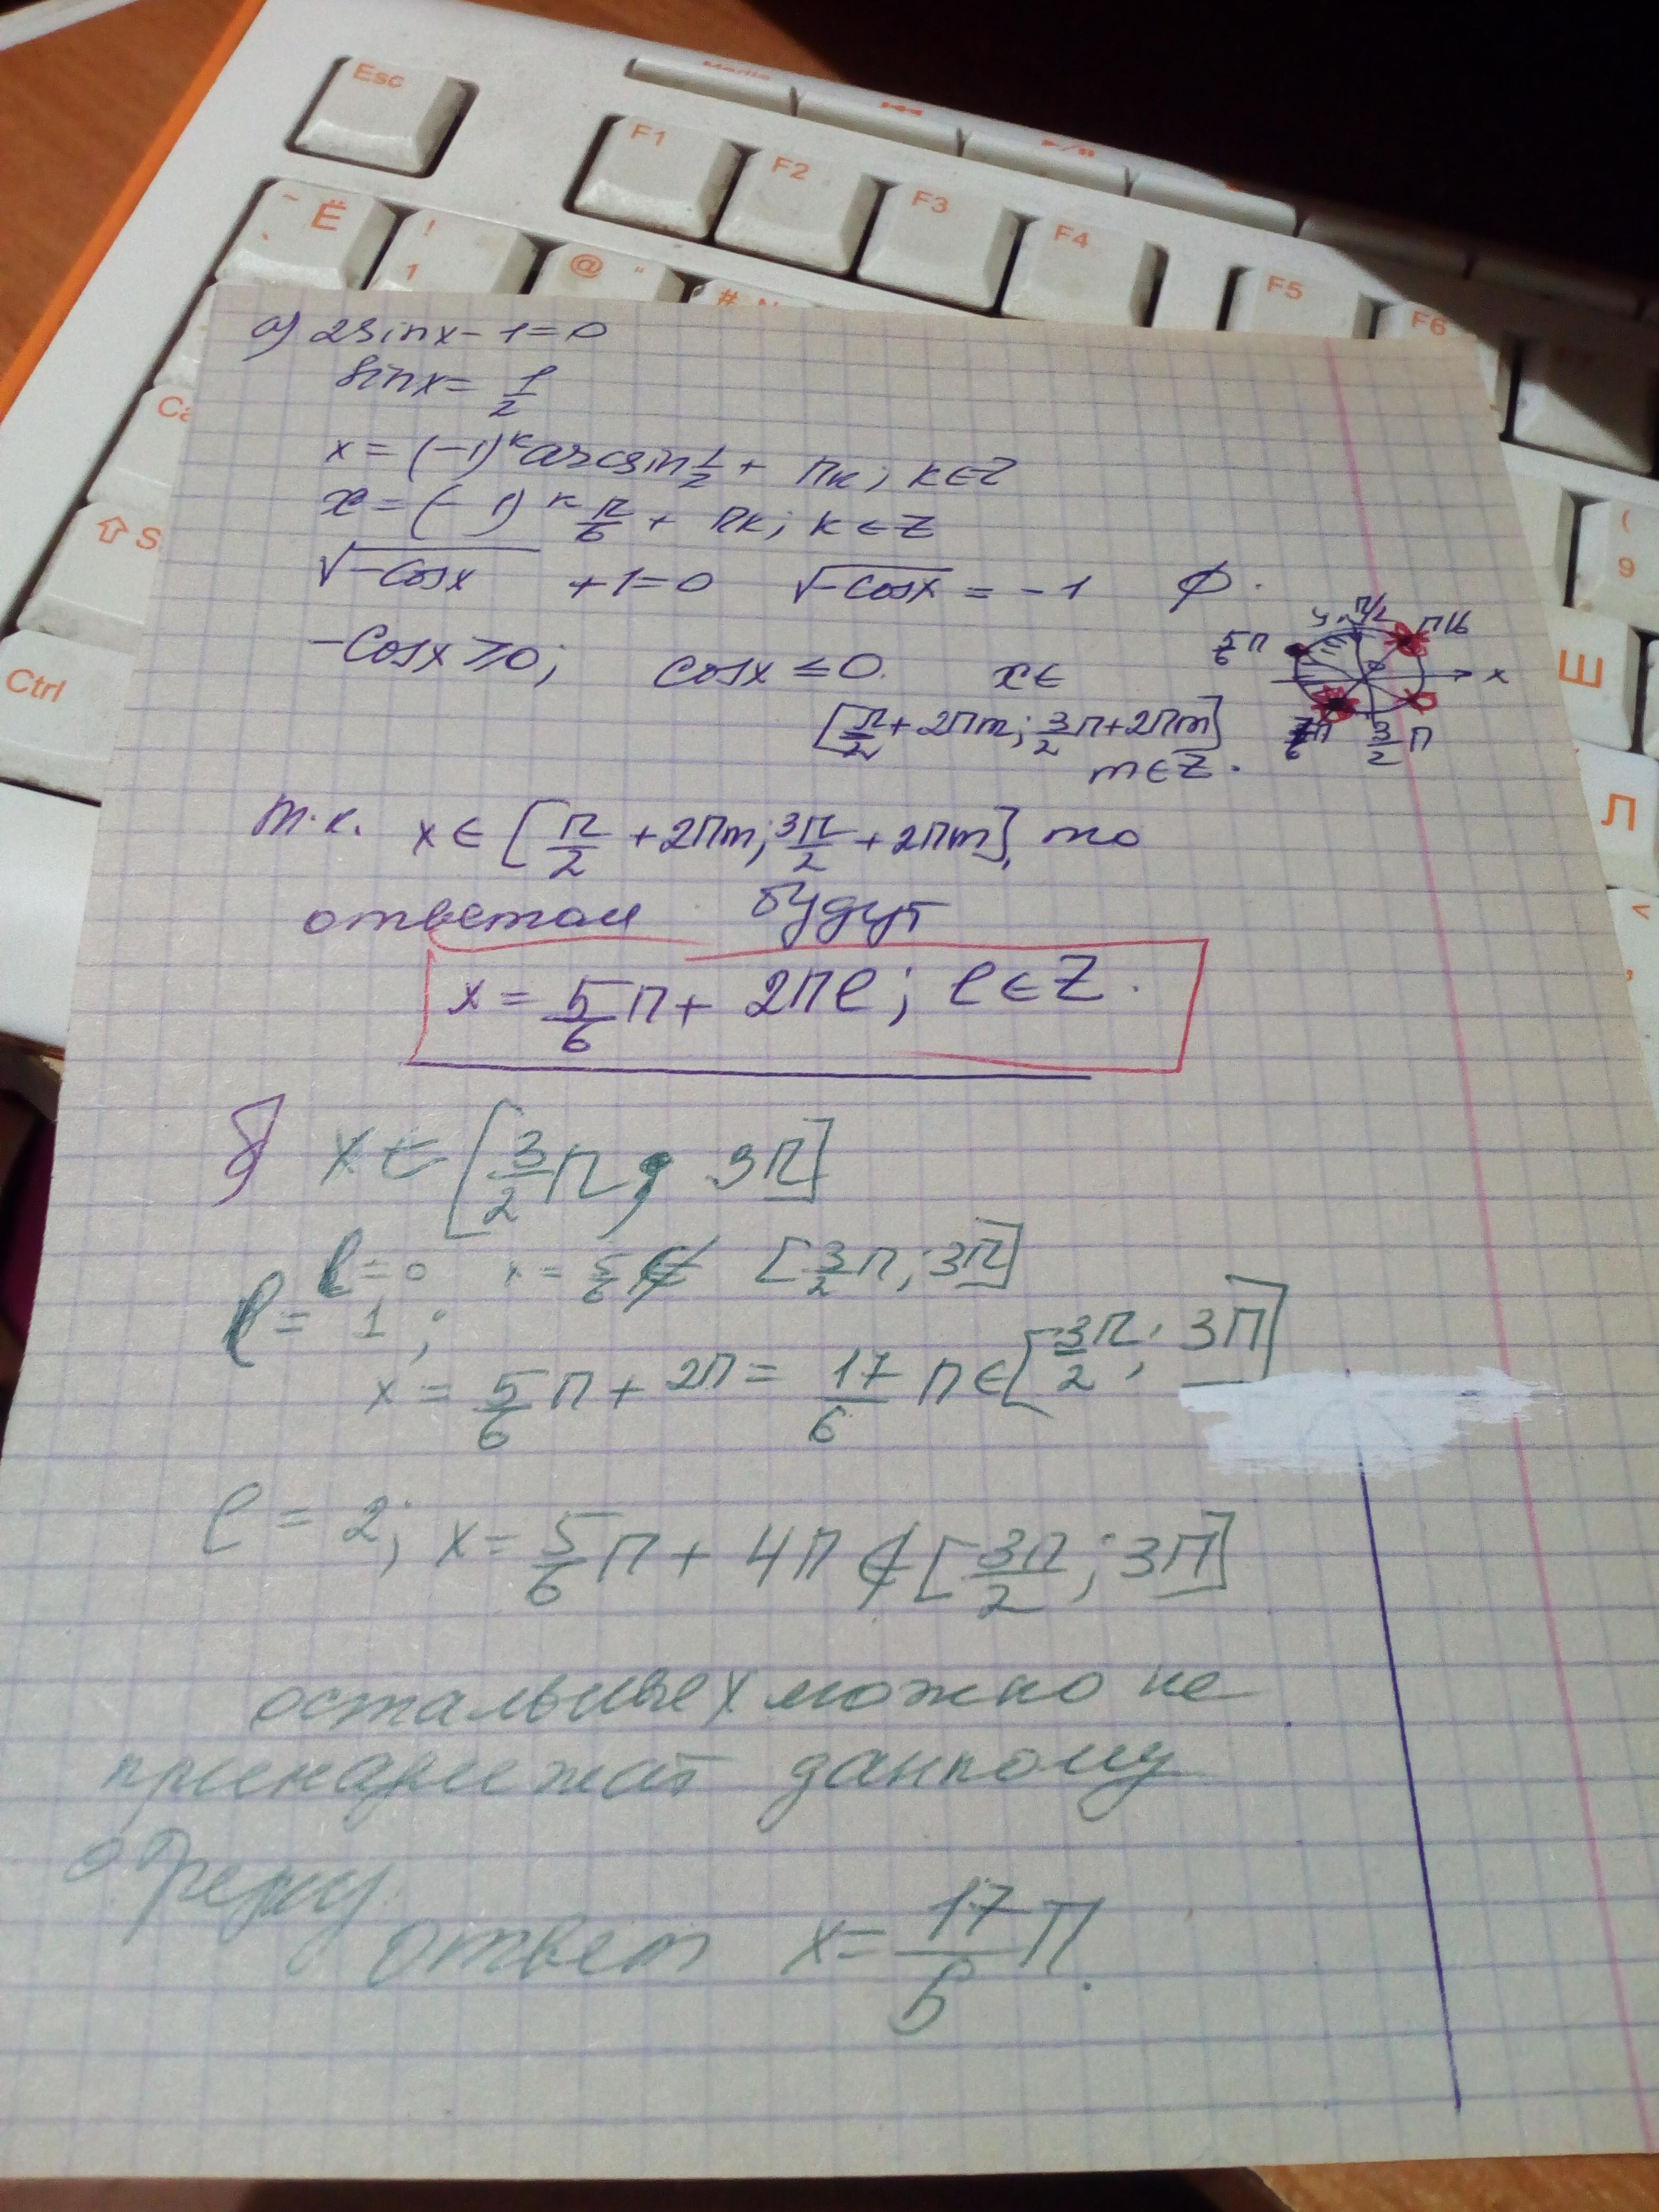 Esc
Media
F1
F2
F3
F4
F5
F6
~ Ё
! 1
@ "
#
( 9
Ctrl
Ш
Л
а) 2sinx - 1 = 0
sinx = 1/2
x = (-1)^к arcsin 1/2 + πк; к ∈ Z
x = (-1)^к π/6 + πк; к ∈ Z
√-cosx + 1 = 0 √-cosx = -1 ∅.
-cosx ≥ 0; cosx ≤ 0. x ∈
[π/2 + 2πm; 3/2 π + 2πm]
m ∈ Z.
y π/2 π/6
5/6 π
0 x
7/6 π 3/2 π
т.к. x ∈ [π/2 + 2πm; 3π/2 + 2πm], то
ответом будут
x = 5/6 π + 2πl; l ∈ Z.
б) x ∈ [3/2 π; 3π]
l = 0 x = 5/6 π ∉ [3/2 π; 3π]
l = 1;
x = 5/6 π + 2π = 17/6 π ∈ [3π/2; 3π]
l = 2; x = 5/6 π + 4π ∉ [3π/2; 3π]
остальные x можно не
принадлежат данному
отрезку.
ответ x = 17/6 π.